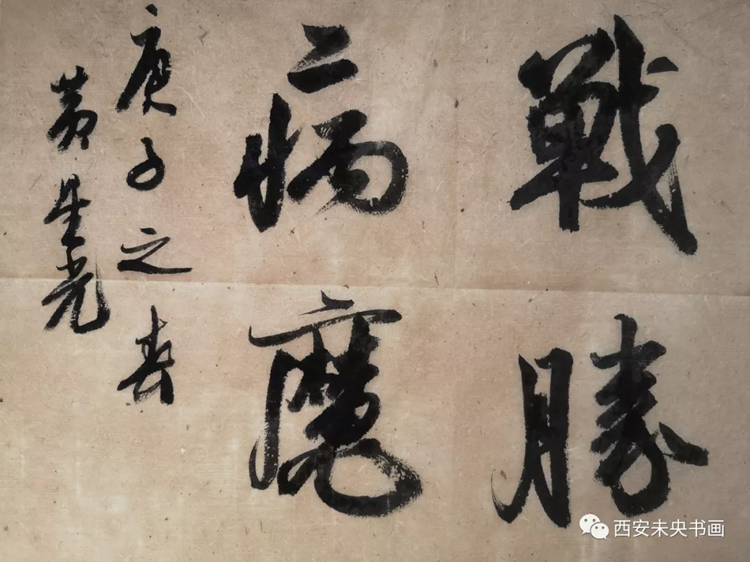 戰勝
病魔
庚子之春
黄星光
西安未央书画